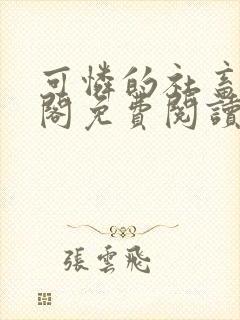 可憐的社畜
閣免費閱讀
張雲飛